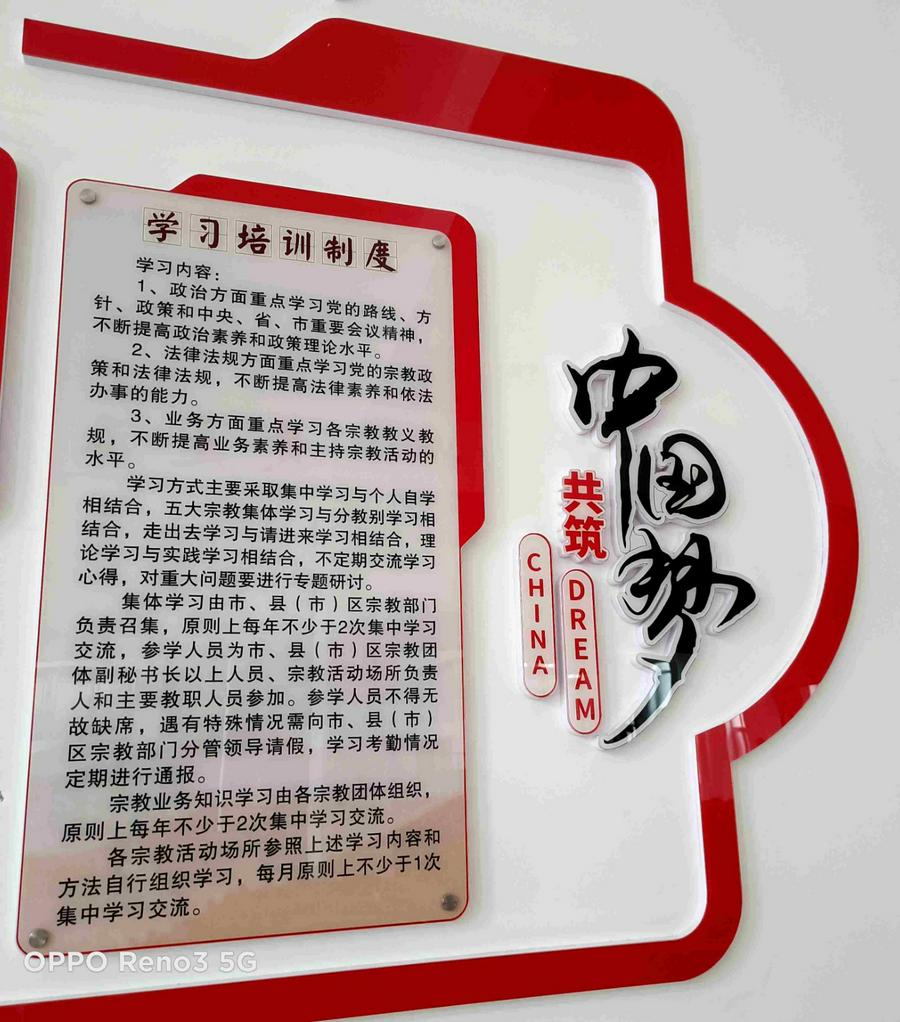 学习培训制度
学习内容：
1、政治方面重点学习党的路线、方
针、政策和中央、省、市重要会议精神，
不断提高政治素养和政策理论水平。
2、法律法规方面重点学习党的宗教政
策和法律法规，不断提高法律素养和依法
办事的能力。
3、业务方面重点学习各宗教教义教
规，不断提高业务素养和主持宗教活动的
水平。
学习方式主要采取集中学习与个人自学
相结合，五大宗教集体学习与分教别学习相
结合，走出去学习与请进来学习相结合，理
论学习与实践学习相结合，不定期交流学习
心得，对重大问题要进行专题研讨。
集体学习由市、县（市）区宗教部门
负责召集，原则上每年不少于2次集中学习
交流，参学人员为市、县（市）区宗教团
体副秘书长以上人员、宗教活动场所负责
人和主要教职人员参加。参学人员不得无
故缺席，遇有特殊情况需向市、县（市）
区宗教部门分管领导请假，学习考勤情况
定期进行通报。
宗教业务知识学习由各宗教团体组织，
原则上每年不少于2次集中学习交流。
各宗教活动场所参照上述学习内容和
方法自行组织学习，每月原则上不少于1次
集中学习交流。
共筑
中国梦
CHINA
DREAM
OPPO Reno3 5G